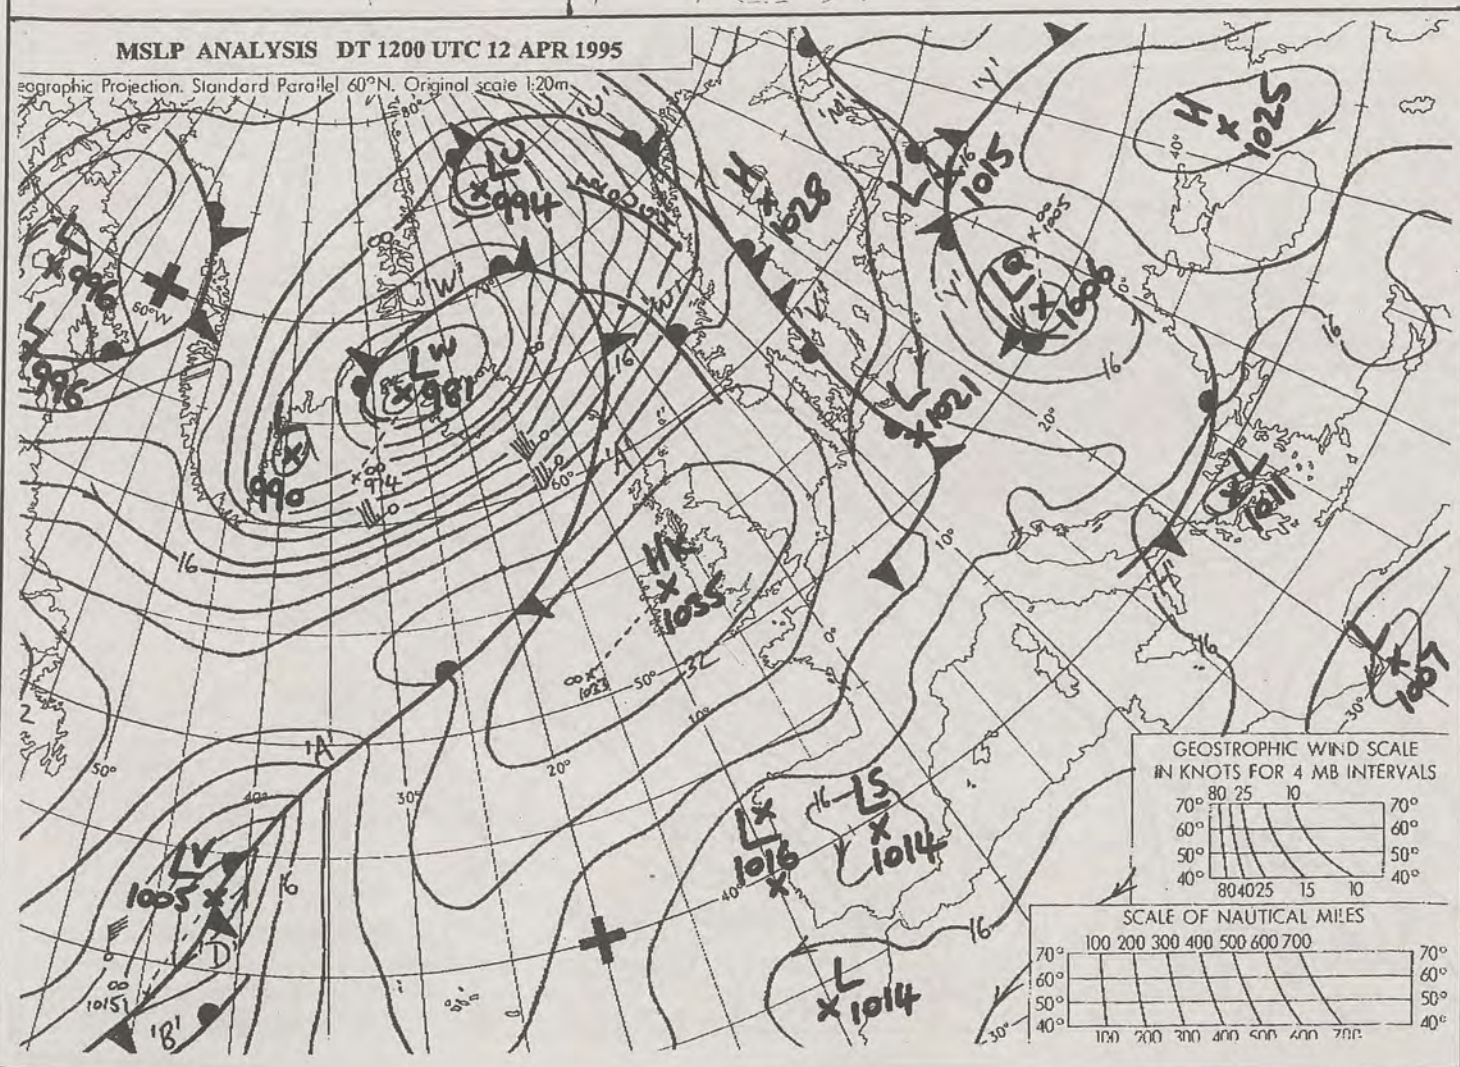 MSLP ANALYSIS DT 1200 UTC 12 APR 1995
eographic Projection. Standard Parallel 60°N. Original scale 1:20m
80°
'U'
'M'
'Y'
H
1025
40°
LU
994
TROUGH
H
1028
L
16
1015
00
1005
L
996
60°W
L
996
00
'W'
70°
'W'
LQ
1000
0°
'Y'
16
16
LW
981
8
16
L
990
00
974
0
0
0
60°
'A'
L
1021
20°
L
1011
16
HK
1035
10°
00
1033
50°
32
0°
10°
16
L
1007
30°
2
50°
'A'
40°
30°
20°
LV
1005
16
'D'
00
1015
'B'
L
1016
16
LS
1014
40°
16
L
1014
30°
GEOSTROPHIC WIND SCALE
IN KNOTS FOR 4 MB INTERVALS
80 25 10
70° 70°
60° 60°
50° 50°
40° 40°
80 40 25 15 10
SCALE OF NAUTICAL MILES
100 200 300 400 500 600 700
70° 70°
60° 60°
50° 50°
40° 40°
100 200 300 400 500 600 700